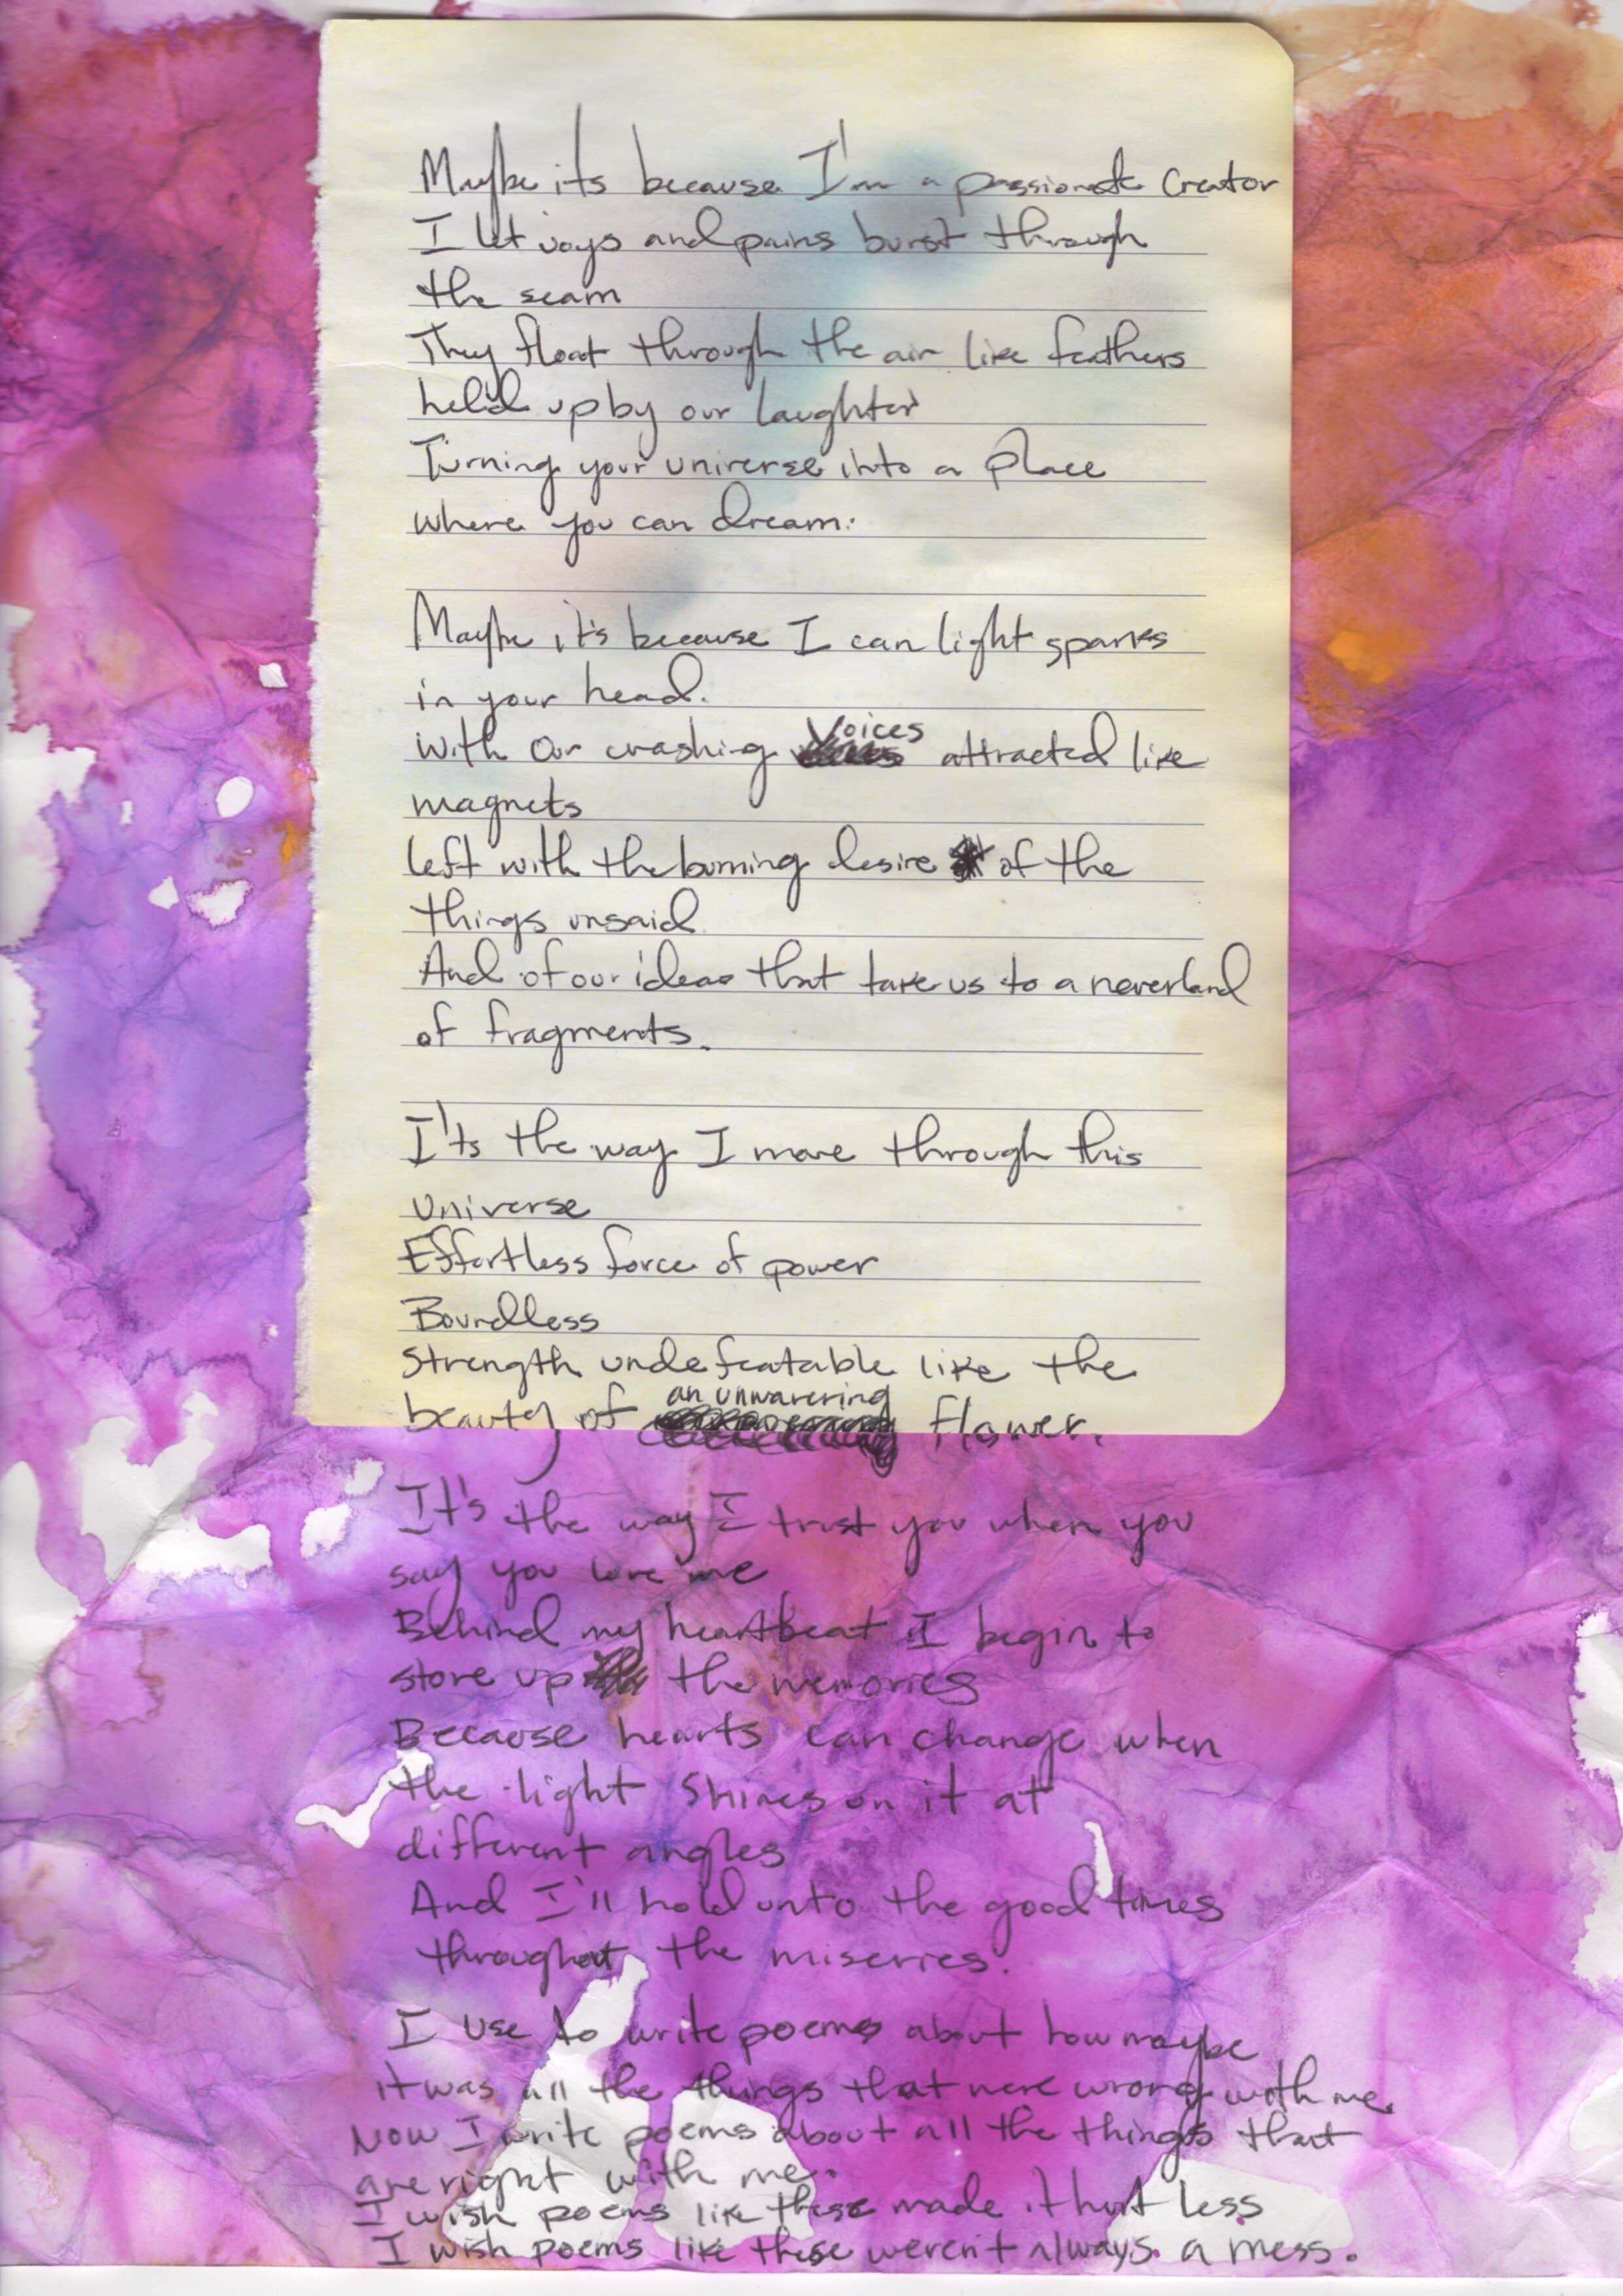 Maybe its because I'm a passionate Creator
I let joys and pains burst through
the seam
They float through the air like feathers
held up by our laughter
Turning your universe into a place
where you can dream.
Maybe it's because I can light sparks
in your head.
With our crashing Voices attracted like
magnets
left with the burning desire of the
things unsaid
And of our ideas that take us to a neverland
of fragments.
I'ts the way I move through this
Universe
Effortless force of power
Boundless
Strength undefeatable like the
beauty of an unwavering flower.
It's the way I trust you when you
say you love me
Behind my heartbeat I begin to
store up the memories
Because hearts can change when
the light shines on it at
different angles
And I'll hold unto the good times
throughout the miseries.
I use to write poems about how maybe
it was all the things that were wrong with me.
Now I write poems about all the things that
are right with me.
I wish poems like these made it hurt less
I wish poems like these weren't always a mess.